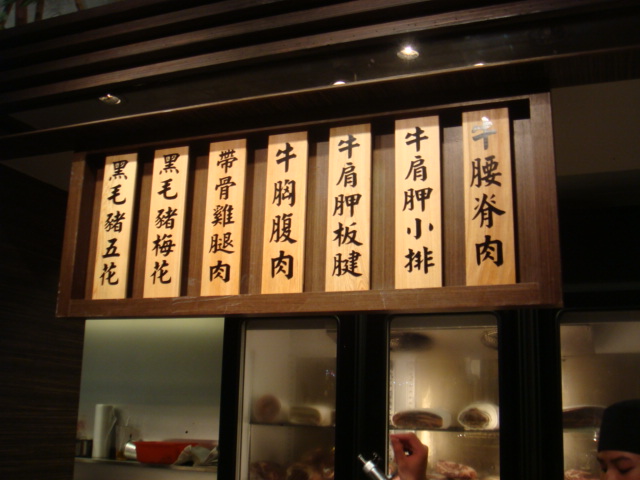 牛腰脊肉
牛肩胛小排
牛肩胛板腱
牛胸腹肉
帶骨雞腿肉
黑毛豬梅花
黑毛豬五花